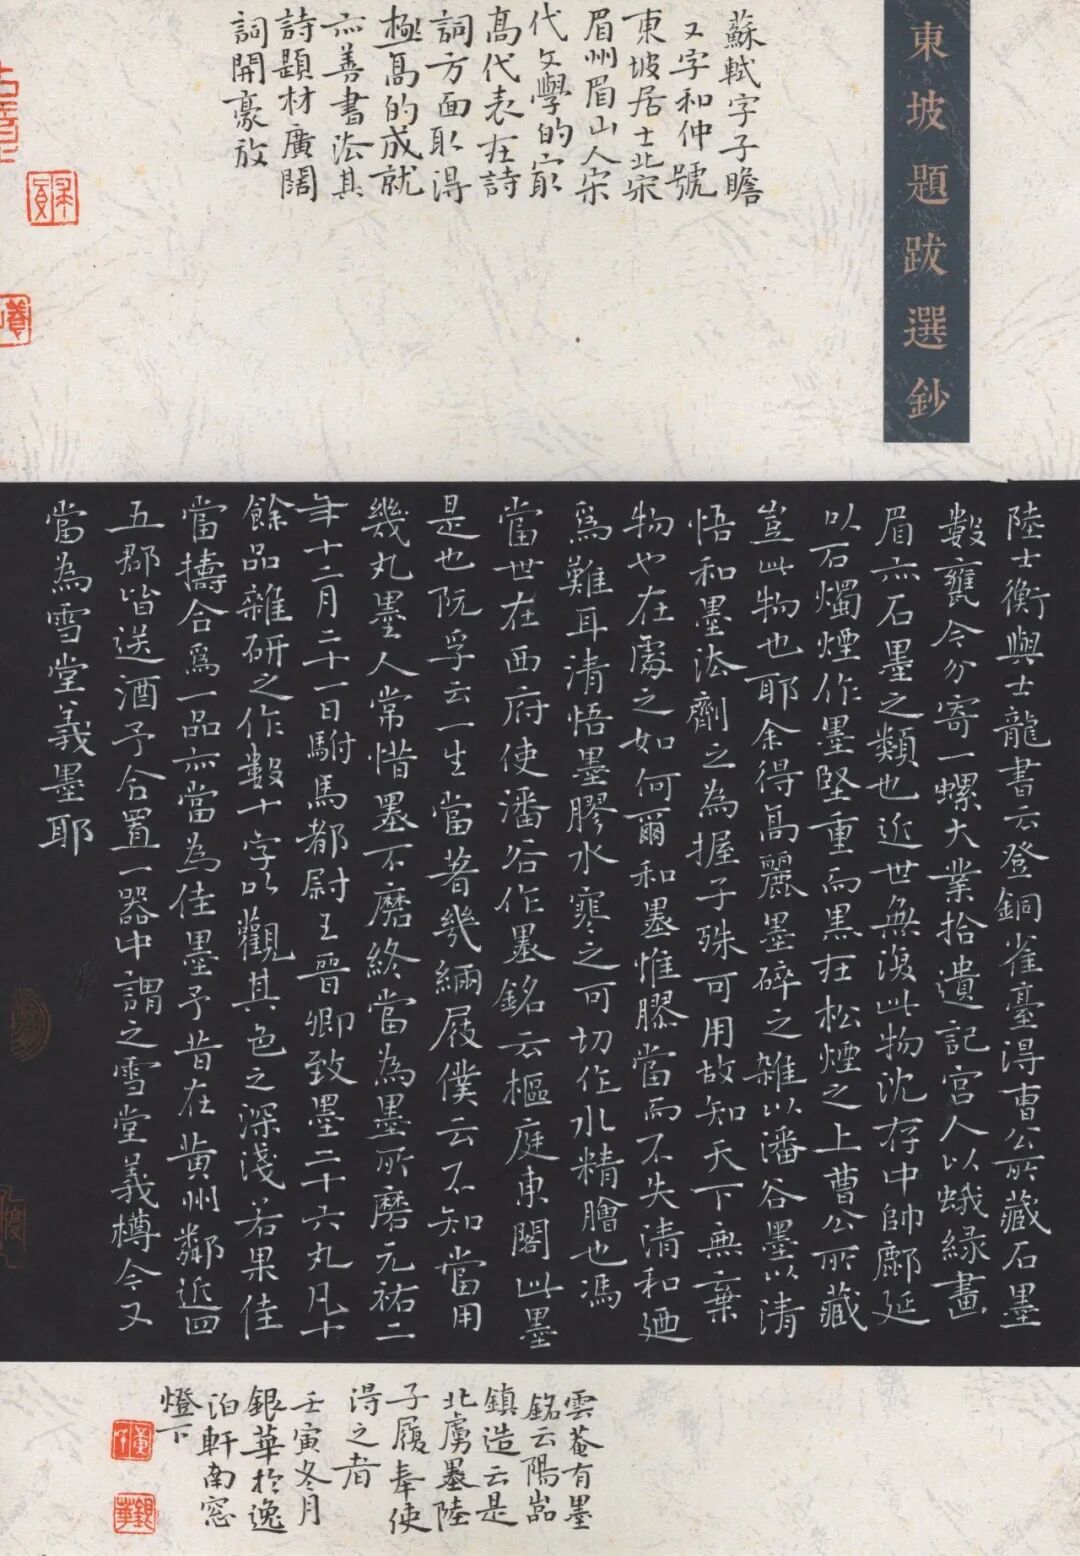 東坡題跋選鈔
蘇軾字子瞻
又字和仲號
東坡居士北宋
眉州眉山人宋
代文學的最
高代表在詩
詞方面取得
極高的成就
亦善書法其
詩題材廣闊
詞開豪放
陸士衡與士龍書云登銅雀臺得曹公所藏石墨
數甕今分寄一螺大業拾遺記宮人以蛾綠畫
眉亦石墨之類也近世無復此物沈存中帥鄜延
以石燭煙作墨堅重而黑在松煙之上曹公所藏
豈此物也耶余得高麗墨碎之雜以潘谷墨以清
悟和墨法劑之為握子殊可用故知天下無棄
物也在處之如何爾和墨惟膠當而不失清和迺
為難耳清悟墨膠水寒之可切作水精膾也馮
當世在西府使潘谷作墨銘云樞庭東閣此墨
是也阮孚云一生當著幾緉屐僕云不知當用
幾丸墨人常惜墨不磨終當為墨所磨元祐二
年十二月二十一日駙馬都尉王晉卿致墨二十六丸凡十
餘品雜研之作數十字以觀其色之深淺若果佳
當擣合為一品亦當為佳墨予昔在黃州鄰近四
五郡皆送酒予合置一器中謂之雪堂義樽今又
當為雪堂義墨耶
雲菴有墨
銘云陽嵓
鎮造云是
北虜墨陸
子履奉使
得之者
壬寅冬月
銀華於逸
泊軒南窓
燈下